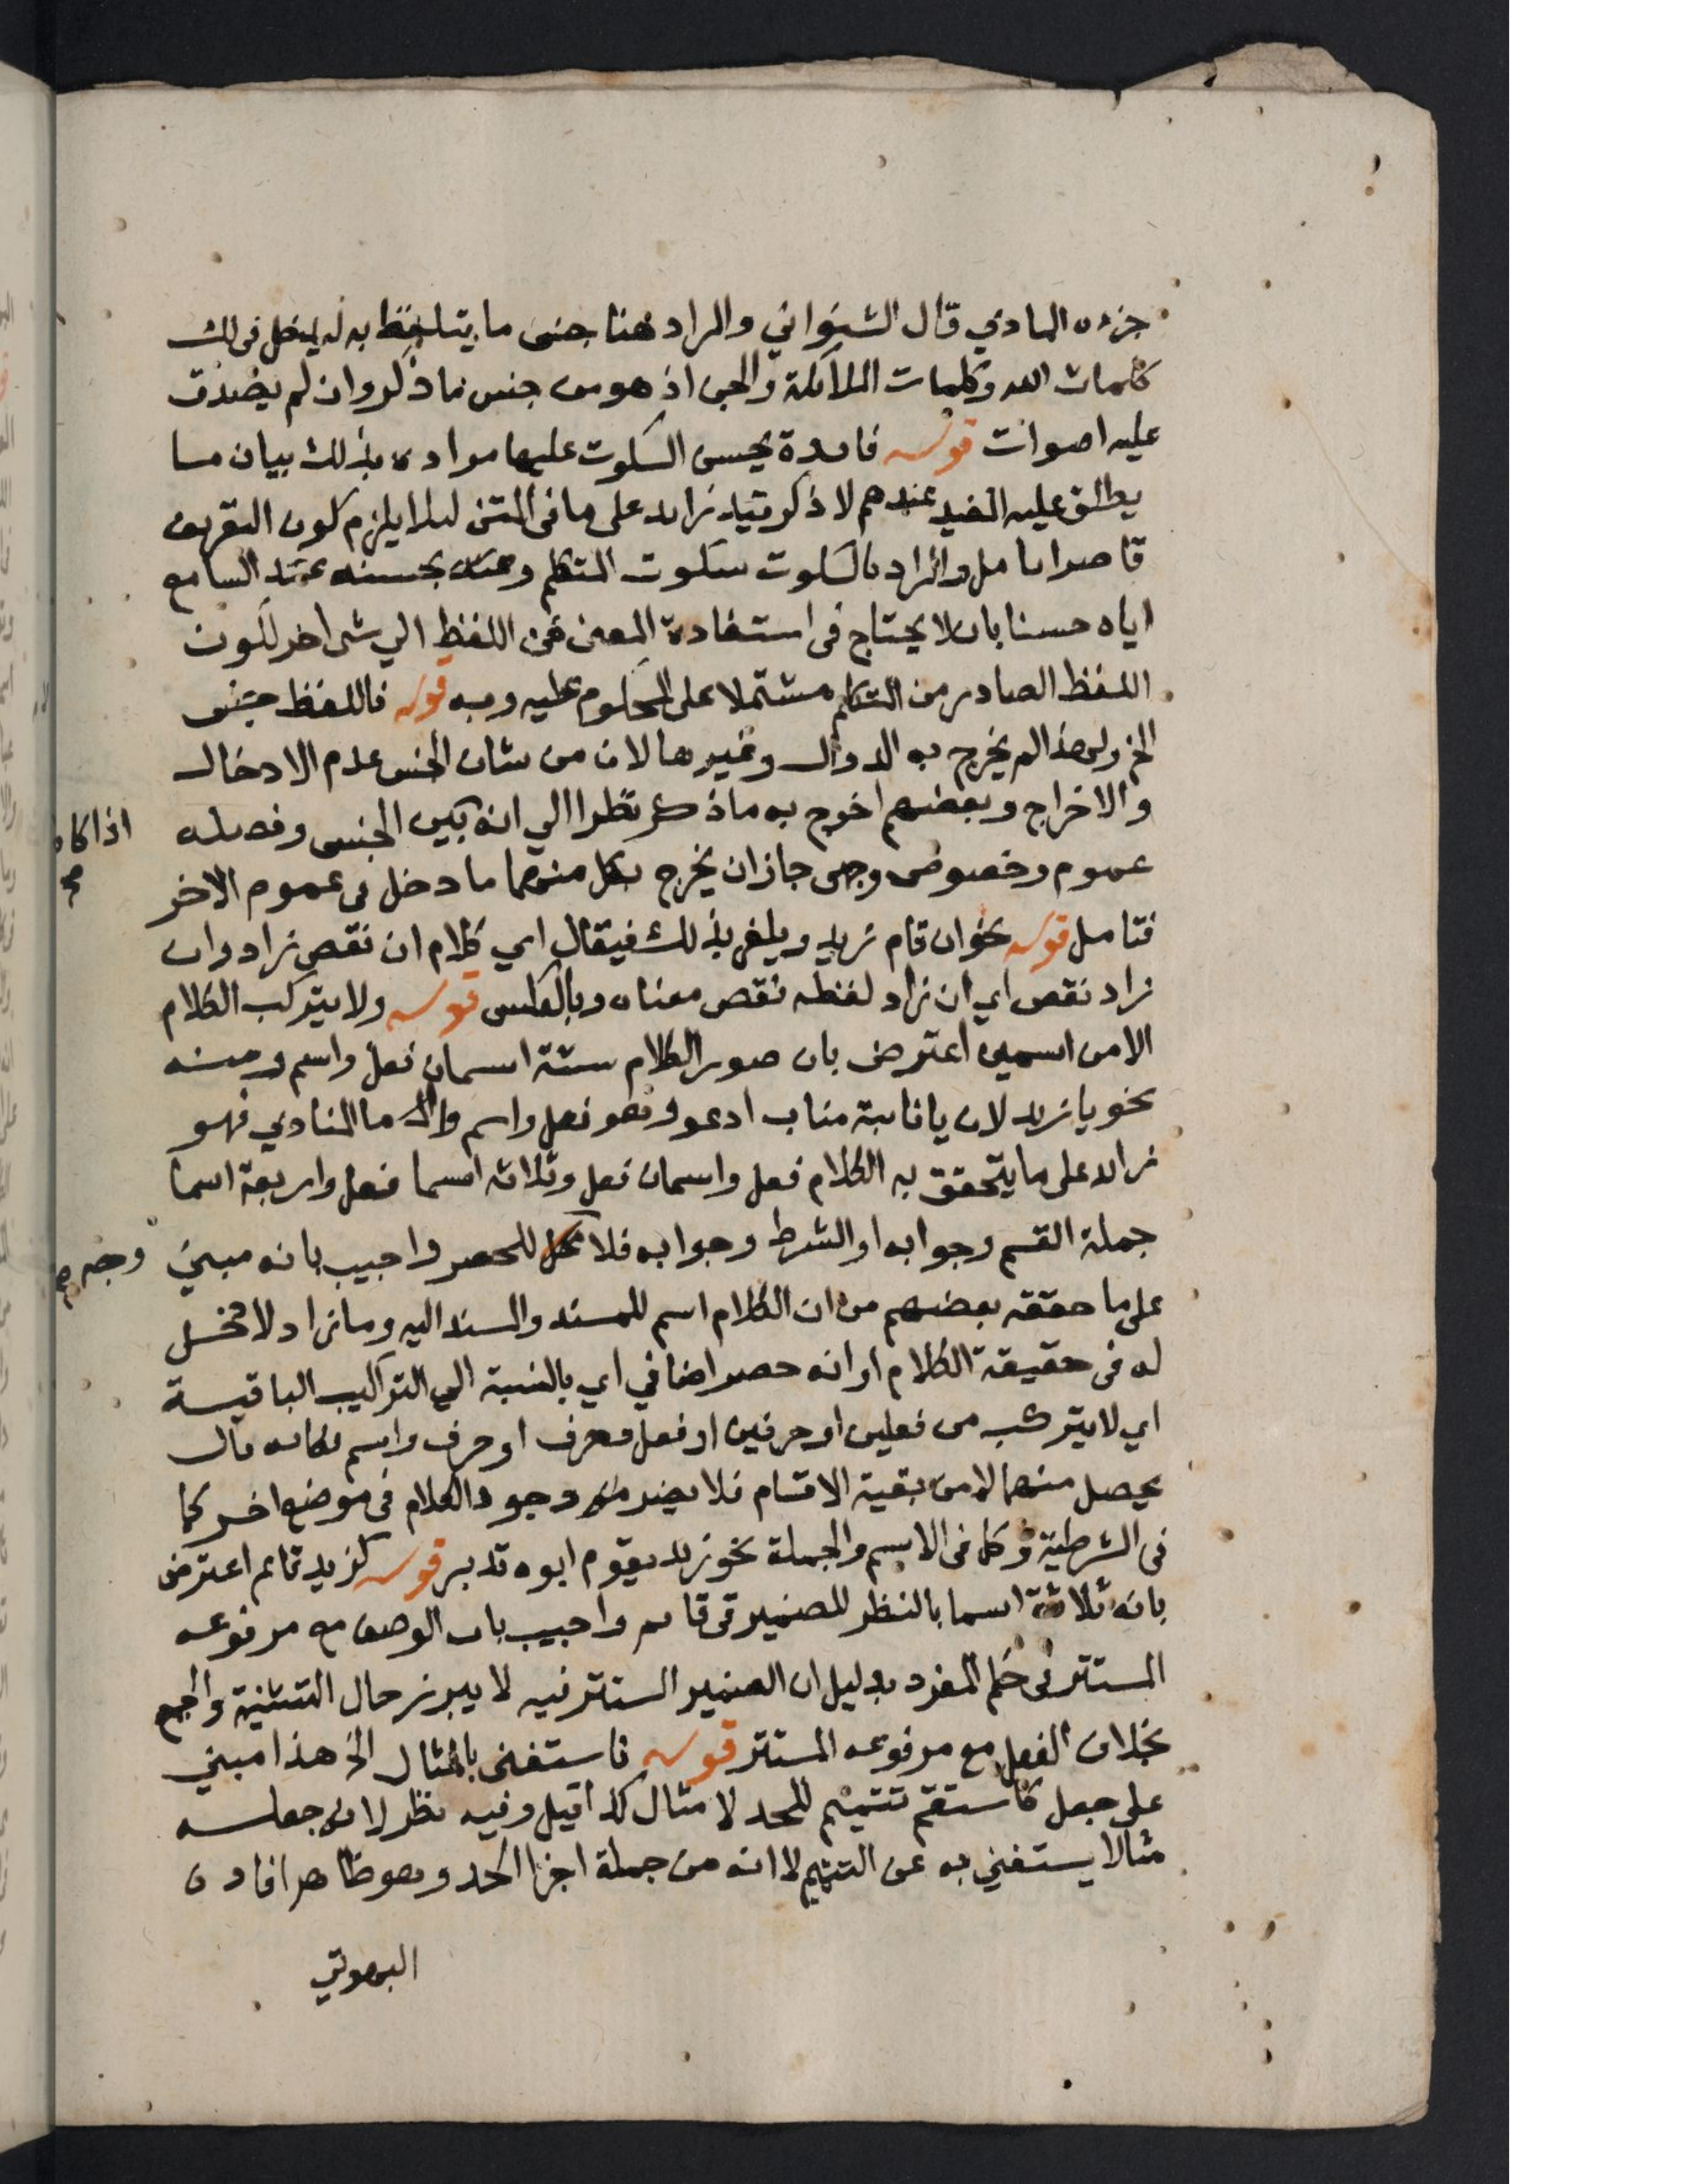 جزءه المادي قال الشنواني والمراد هنا جنس ما يتلفظ به ليدخل في ذلك
كلمات الله وكلمات الملائكة والجن اذ هو من جنس ما ذكر وان لم يصدق
عليه اصوات قوله فائدة يحسن السكوت عليها مراده بذلك بيان ما
يطلق عليه المفيد عندهم لا ذكر قيد زائد على ما في المتن لئلا يلزم كون التعريف
قاصرا تامل والمراد بالسكوت سكوت المتكلم وحسنه عند السامع
اياه حسنا بان لا يحتاج في استفادة المعنى من اللفظ الي شي اخر لكون
اللفظ الصادر من المتكلم مشتملا على المحكوم عليه وبه قوله فاللفظ جنس
الخ ولهذا لم يخرج به الدوال وغيرها لان من شان الجنس عدم الادخال
والاخراج وبعضهم اخرج به ما ذكر نظرا الي انه بين الجنس وفصله
اذا كان صح
عموم وخصوص وجهي جاز ان يخرج بكل منهما ما دخل في عموم الاخر
فتامل قوله نحو ان قام زيد ويلغز بذلك فيقال اي كلام ان نقص زاد وان
زاد نقص اي ان زاد لفظه نقص معناه وبالعكس قوله ولا يتركب الكلام
الا من اسمين اعترض بان صور الكلام ستة اسمان فعل واسم ومنه
نحو يا زيد لان يا نائبة مناب ادعو وهو فعل واسم واما المنادي فهو
زائد على ما يتحقق به الكلام فعل واسمان فعل وثلاثه اسما فعل واربعة اسما
جملة القسم وجوابه او الشرط وجوابه فلا للحصر واجيب بانه مبني
وجه صح
على ما حققه بعضهم من ان الكلام اسم للمسند والمسند اليه وما زاد لا دخل
له في حقيقة الكلام او انه حصر اضافي اي بالنسبة الي التراكيب الباقية
اي لا يتركب من فعلين او حرفين او فعل وحرف او حرف واسم فكانه قال
يحصل منهما لا من بقية الاقسام فلا يضر وجود الكلام في موضع اخر كما
في الشرطية وكما في الاسم والجملة نحو زيد يقوم ابوه تدبر قوله كزيد قائم اعترض
بانه ثلاثة اسما بالنظر للضمير في قائم واجيب بان الوصف مع مرفوعه
المستتر في حكم المفرد بدليل ان الضمير المستتر فيه لا يبرز حال التثنية والجمع
بخلاف الفعل مع مرفوعه المستتر قوله فاستغنى بالمثال الخ هذا مبني
على جعل كاستقم تتميم للحد لا مثال كذا قيل وفيه نظر لان جعله
مثالا يستغني به عن التتميم لا انه من جملة اجزا الحد وهو ظاهر افاده
البهوتي